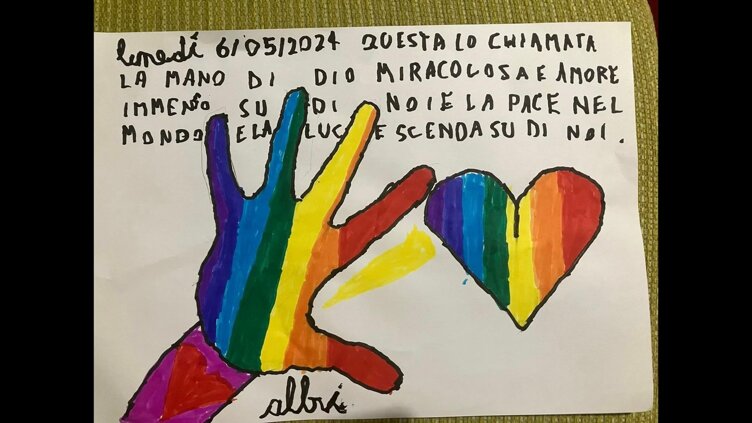 lunedí 6/05/2024 QUESTA LO CHIAMATA
LA MANO DI DIO MIRACOLOSA E AMORE
IMMENSO SU DI NOI E LA PACE NEL
MONDO E LA LUCE SCENDA SU DI NOI.
albri